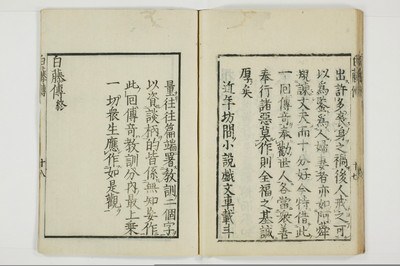 出許多喪身之禍後人戒之可
以為鑒為人婦妻者亦如
規諫丈夫而十分好今特借此
一回傳奇奉勸世人各當衆善
奉行諸惡莫作則全福之基誠
厚矣
近年坊間小說戲文車載斗
量往往篇端署教訓二個字
以資談柄的皆係無知妄作
此回傳奇教訓分內最上乘
一切衆生應作如是觀
白藤傳終
白藤傳
十八